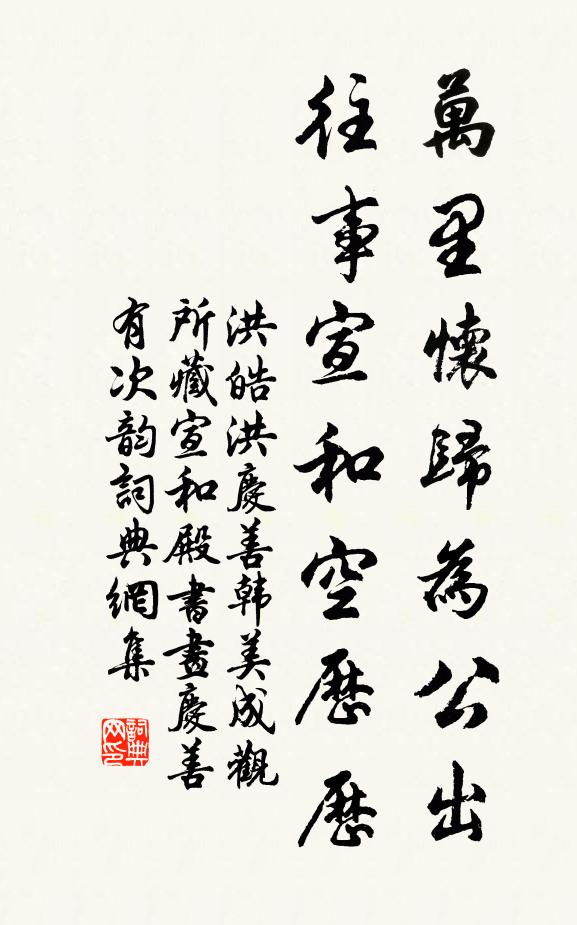 萬里懷歸為公出
往事宣和空歷歷
洪皓洪慶善韩美成觀
所藏宣和殿書畫慶善
有次韵詞典網集
詞典网印